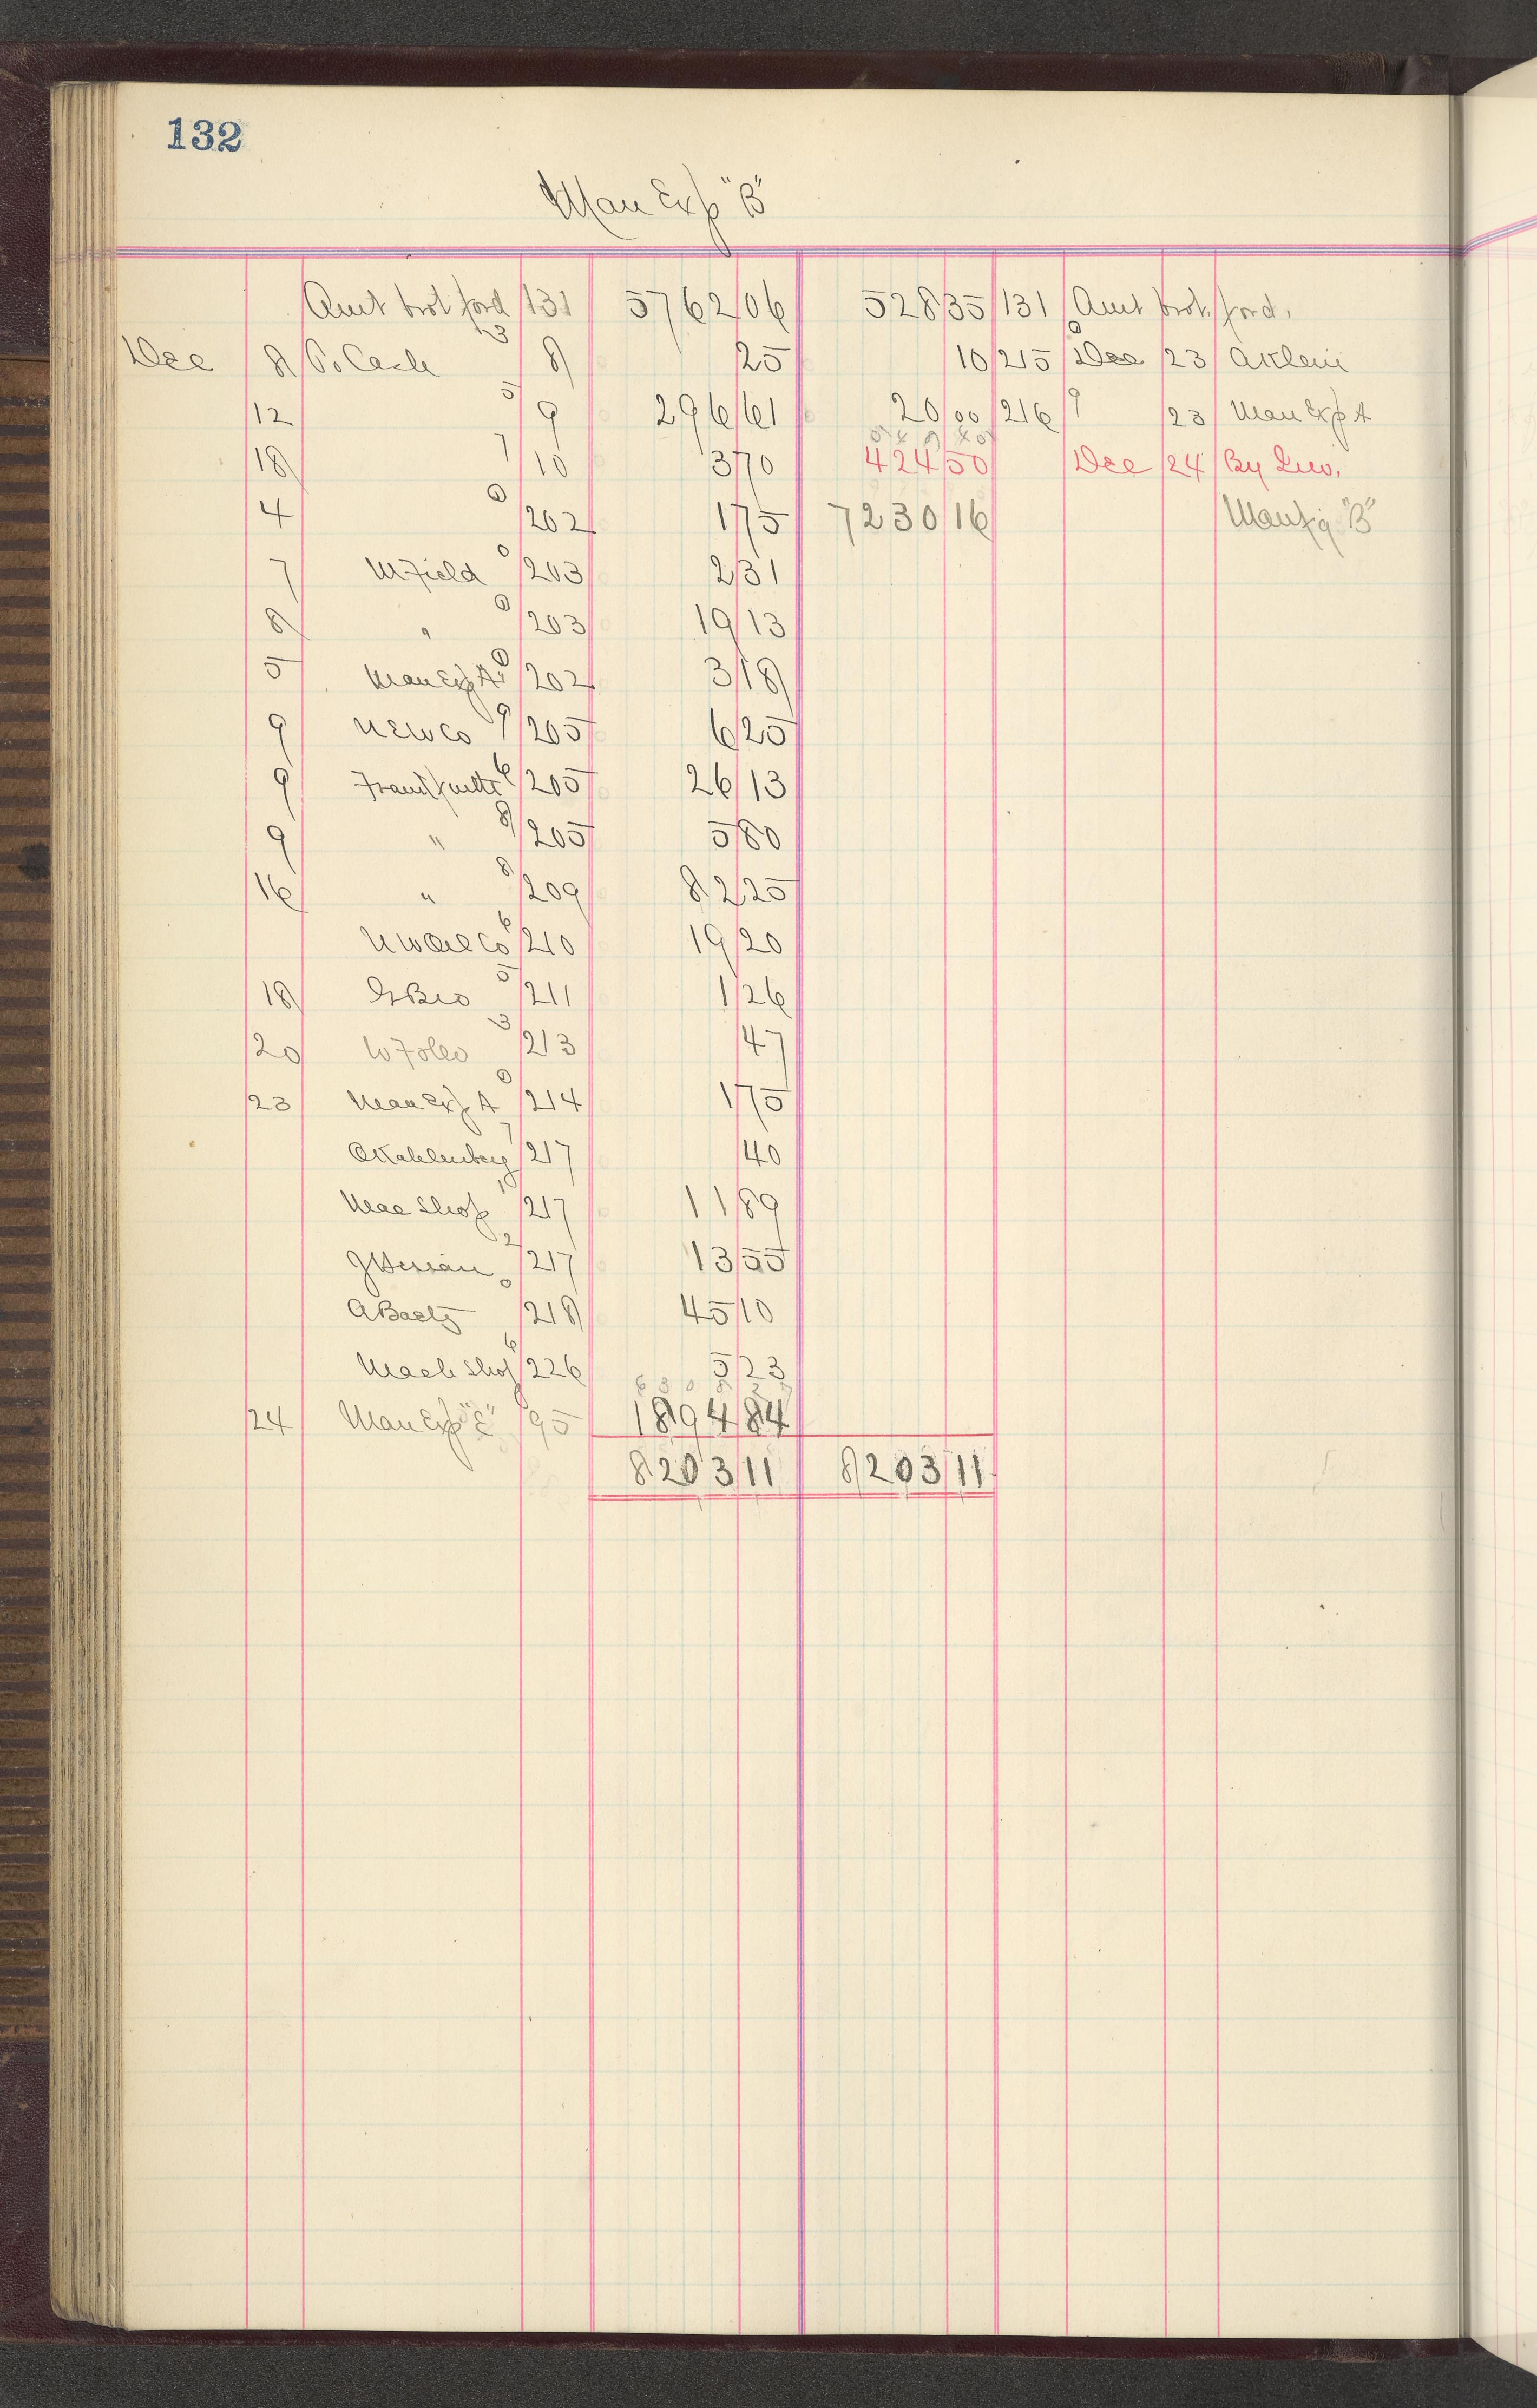 132
Man Exp "B"
Amt brot ford 131 5762 06 528 35 131 Amt brot ford.
Dec 8 P. Cash 8 25 10 215 Dec 23 A Klein
12 9 296 61 20 00 216 23 Man Exp A
18 10 3 70 424 50 Dec 24 By Inv.
4 202 1 75 7230 16 Manfg "B"
7 M Field 203 2 31
8 " 203 19 13
5 Man Exp A 202 3 18
9 N E W Co 205 6 25
9 205 26 13
9 " 205 5 80
16 " 209 82 25
N W Oil Co 210 19 20
18 G Bro 211 1 26
20 W 213 47
23 Man Exp A 214 1 75
O Kahlenberg 217 40
Mac Shop 217 11 89
217 13 55
A Baetz 218 45 10
Mach Shop 226 5 23
24 Man Exp "E" 95 1894 84
8203 11 8203 11